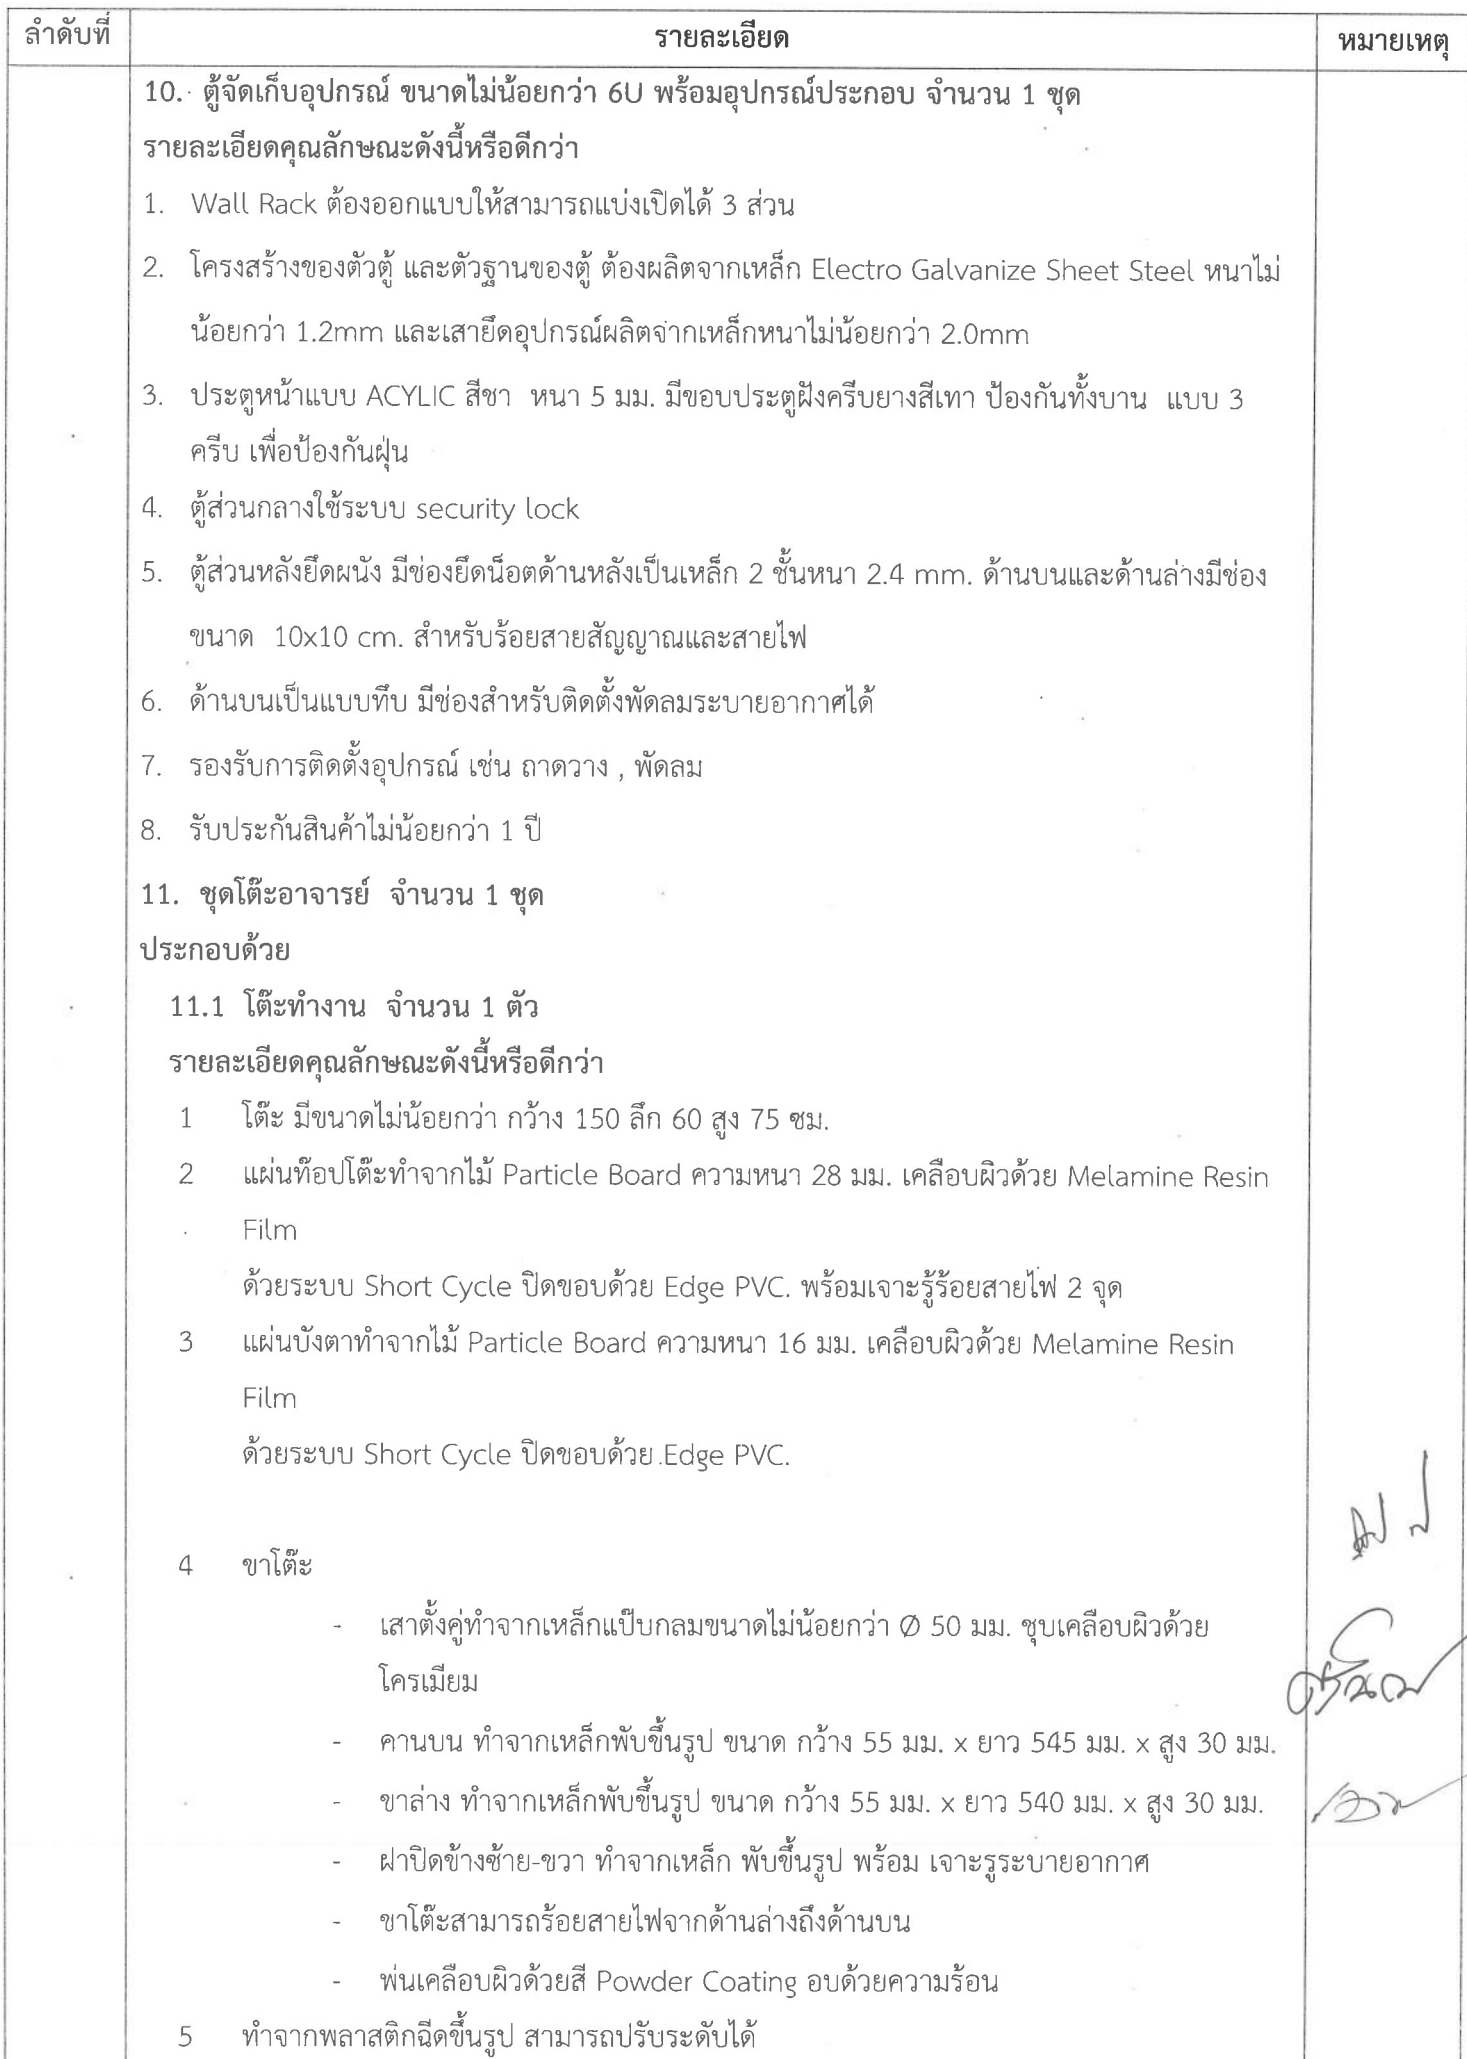 ลำดับที่ รายละเอียด หมายเหตุ
10. ตู้จัดเก็บอุปกรณ์ ขนาดไม่น้อยกว่า 6U พร้อมอุปกรณ์ประกอบ จำนวน 1 ชุด
รายละเอียดคุณลักษณะดังนี้หรือดีกว่า
1. Wall Rack ต้องออกแบบให้สามารถแบ่งเปิดได้ 3 ส่วน
2. โครงสร้างของตัวตู้ และตัวฐานของตู้ ต้องผลิตจากเหล็ก Electro Galvanize Sheet Steel หนาไม่
น้อยกว่า 1.2mm และเสายึดอุปกรณ์ผลิตจากเหล็กหนาไม่น้อยกว่า 2.0mm
3. ประตูหน้าแบบ ACYLIC สีชา หนา 5 มม. มีขอบประตูฝังครีบยางสีเทา ป้องกันทั้งบาน แบบ 3
ครีบ เพื่อป้องกันฝุ่น
4. ตู้ส่วนกลางใช้ระบบ security lock
5. ตู้ส่วนหลังยึดผนัง มีช่องยึดน็อตด้านหลังเป็นเหล็ก 2 ชั้นหนา 2.4 mm. ด้านบนและด้านล่างมีช่อง
ขนาด 10x10 cm. สำหรับร้อยสายสัญญาณและสายไฟ
6. ด้านบนเป็นแบบทึบ มีช่องสำหรับติดตั้งพัดลมระบายอากาศได้
7. รองรับการติดตั้งอุปกรณ์ เช่น ถาดวาง , พัดลม
8. รับประกันสินค้าไม่น้อยกว่า 1 ปี
11. ชุดโต๊ะอาจารย์ จำนวน 1 ชุด
ประกอบด้วย
11.1 โต๊ะทำงาน จำนวน 1 ตัว
รายละเอียดคุณลักษณะดังนี้หรือดีกว่า
1 โต๊ะ มีขนาดไม่น้อยกว่า กว้าง 150 ลึก 60 สูง 75 ซม.
2 แผ่นท๊อปโต๊ะทำจากไม้ Particle Board ความหนา 28 มม. เคลือบผิวด้วย Melamine Resin
Film
ด้วยระบบ Short Cycle ปิดขอบด้วย Edge PVC. พร้อมเจาะรู้ร้อยสายไฟ 2 จุด
3 แผ่นบังตาทำจากไม้ Particle Board ความหนา 16 มม. เคลือบผิวด้วย Melamine Resin
Film
ด้วยระบบ Short Cycle ปิดขอบด้วย Edge PVC.
4 ขาโต๊ะ
- เสาตั้งคู่ทำจากเหล็กแป๊บกลมขนาดไม่น้อยกว่า Ø 50 มม. ชุบเคลือบผิวด้วย
โครเมียม
- คานบน ทำจากเหล็กพับขึ้นรูป ขนาด กว้าง 55 มม. x ยาว 545 มม. x สูง 30 มม.
- ขาล่าง ทำจากเหล็กพับขึ้นรูป ขนาด กว้าง 55 มม. x ยาว 540 มม. x สูง 30 มม.
- ฝาปิดข้างซ้าย-ขวา ทำจากเหล็ก พับขึ้นรูป พร้อม เจาะรูระบายอากาศ
- ขาโต๊ะสามารถร้อยสายไฟจากด้านล่างถึงด้านบน
- พ่นเคลือบผิวด้วยสี Powder Coating อบด้วยความร้อน
5 ทำจากพลาสติกฉีดขึ้นรูป สามารถปรับระดับได้